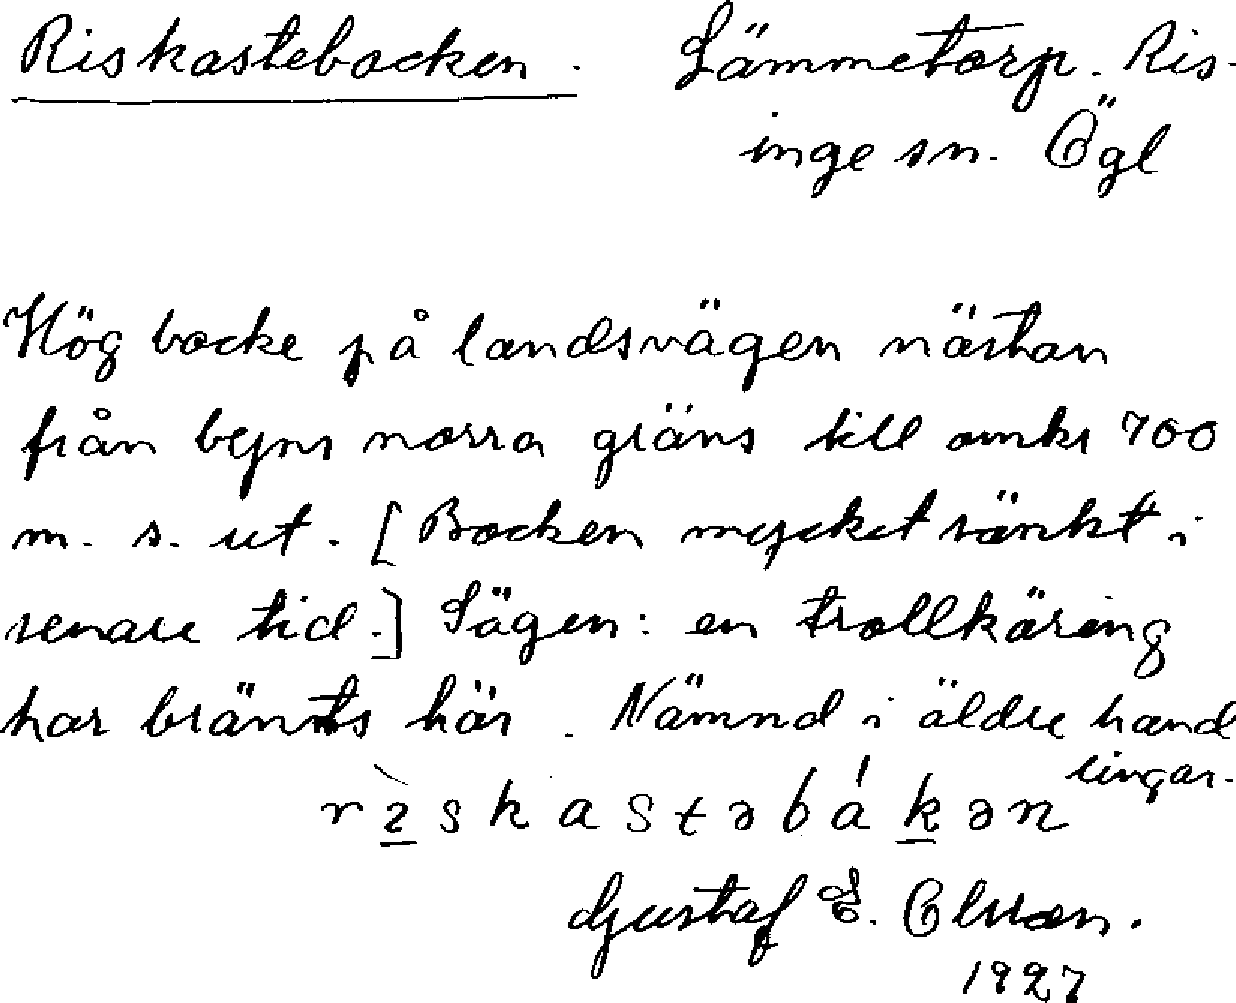 Riskastebacken. Lämmetorp. Ris-
inge sn. Ögl
Hög backe på landsvägen nästan
från byns norra gräns till omkr 700
m. s. ut. [Backen mycket sänkt i
senare tid.] Sägen: en trollkäring
har bränts här. Nämnd i äldre hand
lingar.
rìskastəbákən
Gustaf E. Olsson.
1927